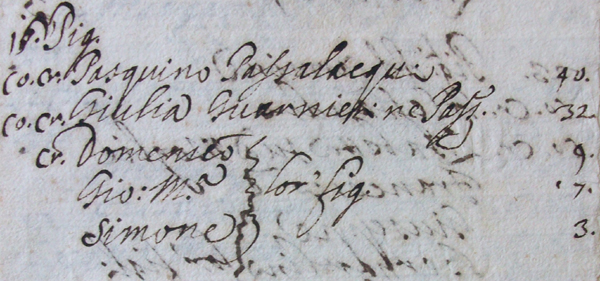 15. Pig.
co. cr. Pasquino Passalacqui 40.
co. cr. Giulia Guarnieri ne Pass. 32.
cr. Domenico 9.
Gio: M.a lor' fig. 7.
Simone 3.